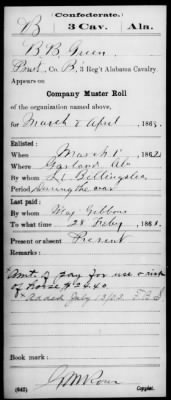 Confederate.
B 3 Cav. Ala.
B B Green
Pvt., Co. B, 3 Reg't Alabama Cavalry.
Appears on
Company Muster Roll
of the organization named above,
for March & April, 1863.
Enlisted:
When March 1, 1862
Where Garland Ala
By whom Lt Billingslea
Period During the war
Last paid:
By whom Maj Gibbons
To what time 28 Feby, 1863.
Present or absent Present
Remarks:
Amt. of pay for use & risk
of horse $24.40
Book mark:
(642) Copyist.